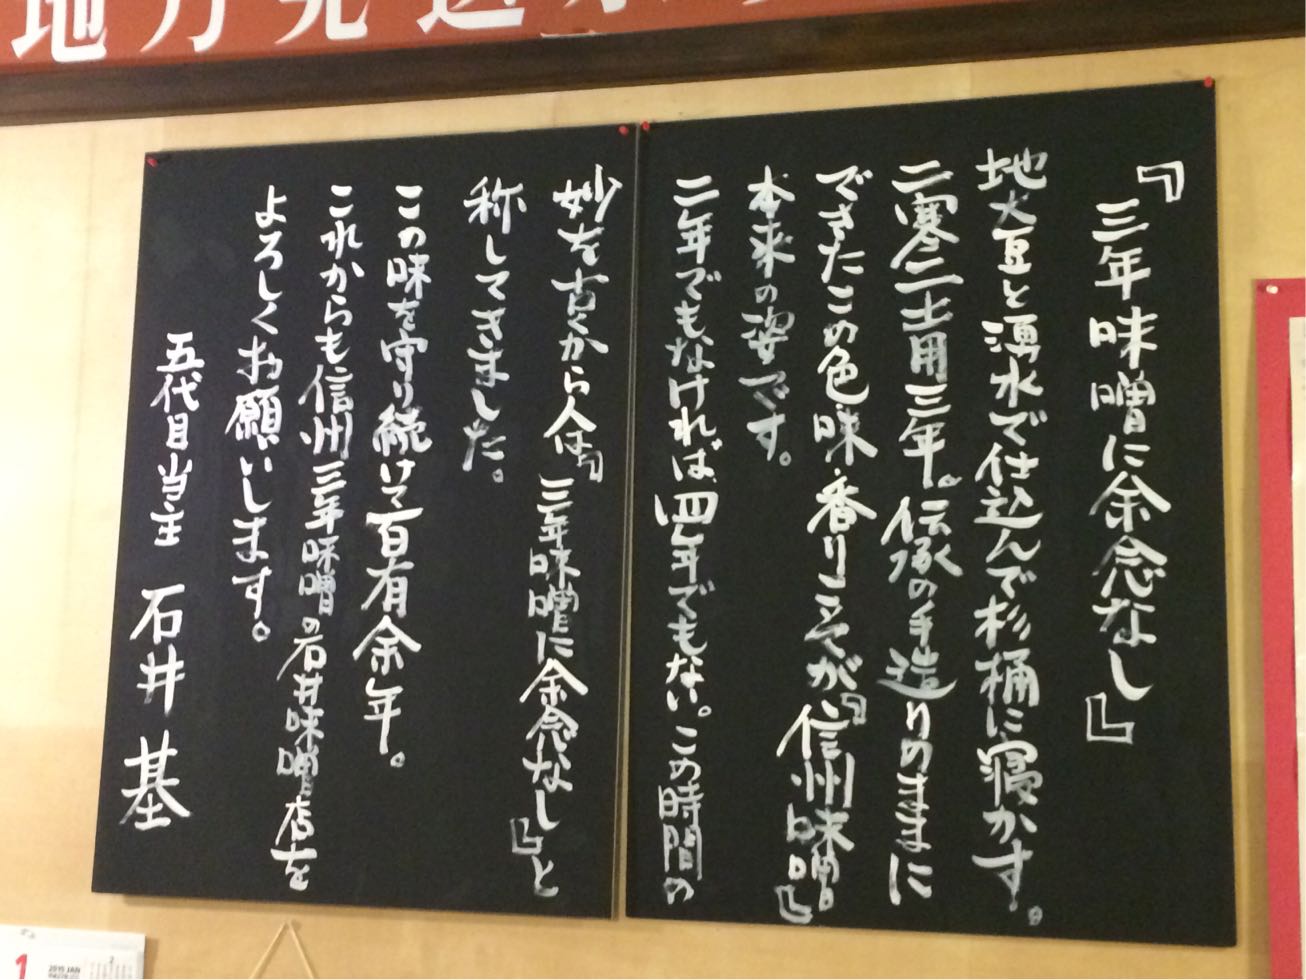 地方発送
『三年味噌に余念なし』
地大豆と湧水で仕込んで杉桶に寝かす。
二寒二土用三年。伝承の手造りのままに
できたこの色味・香りこそが『信州味噌』
本来の姿です。
二年でもなければ、四年でもない。この時間の
妙を古くから人は『三年味噌に余念なし』と
称してきました。
この味を守り続けて百有余年。
これからも信州三年味噌の石井味噌店を
よろしくお願いします。
五代目当主 石井基
1
2015 JAN
2